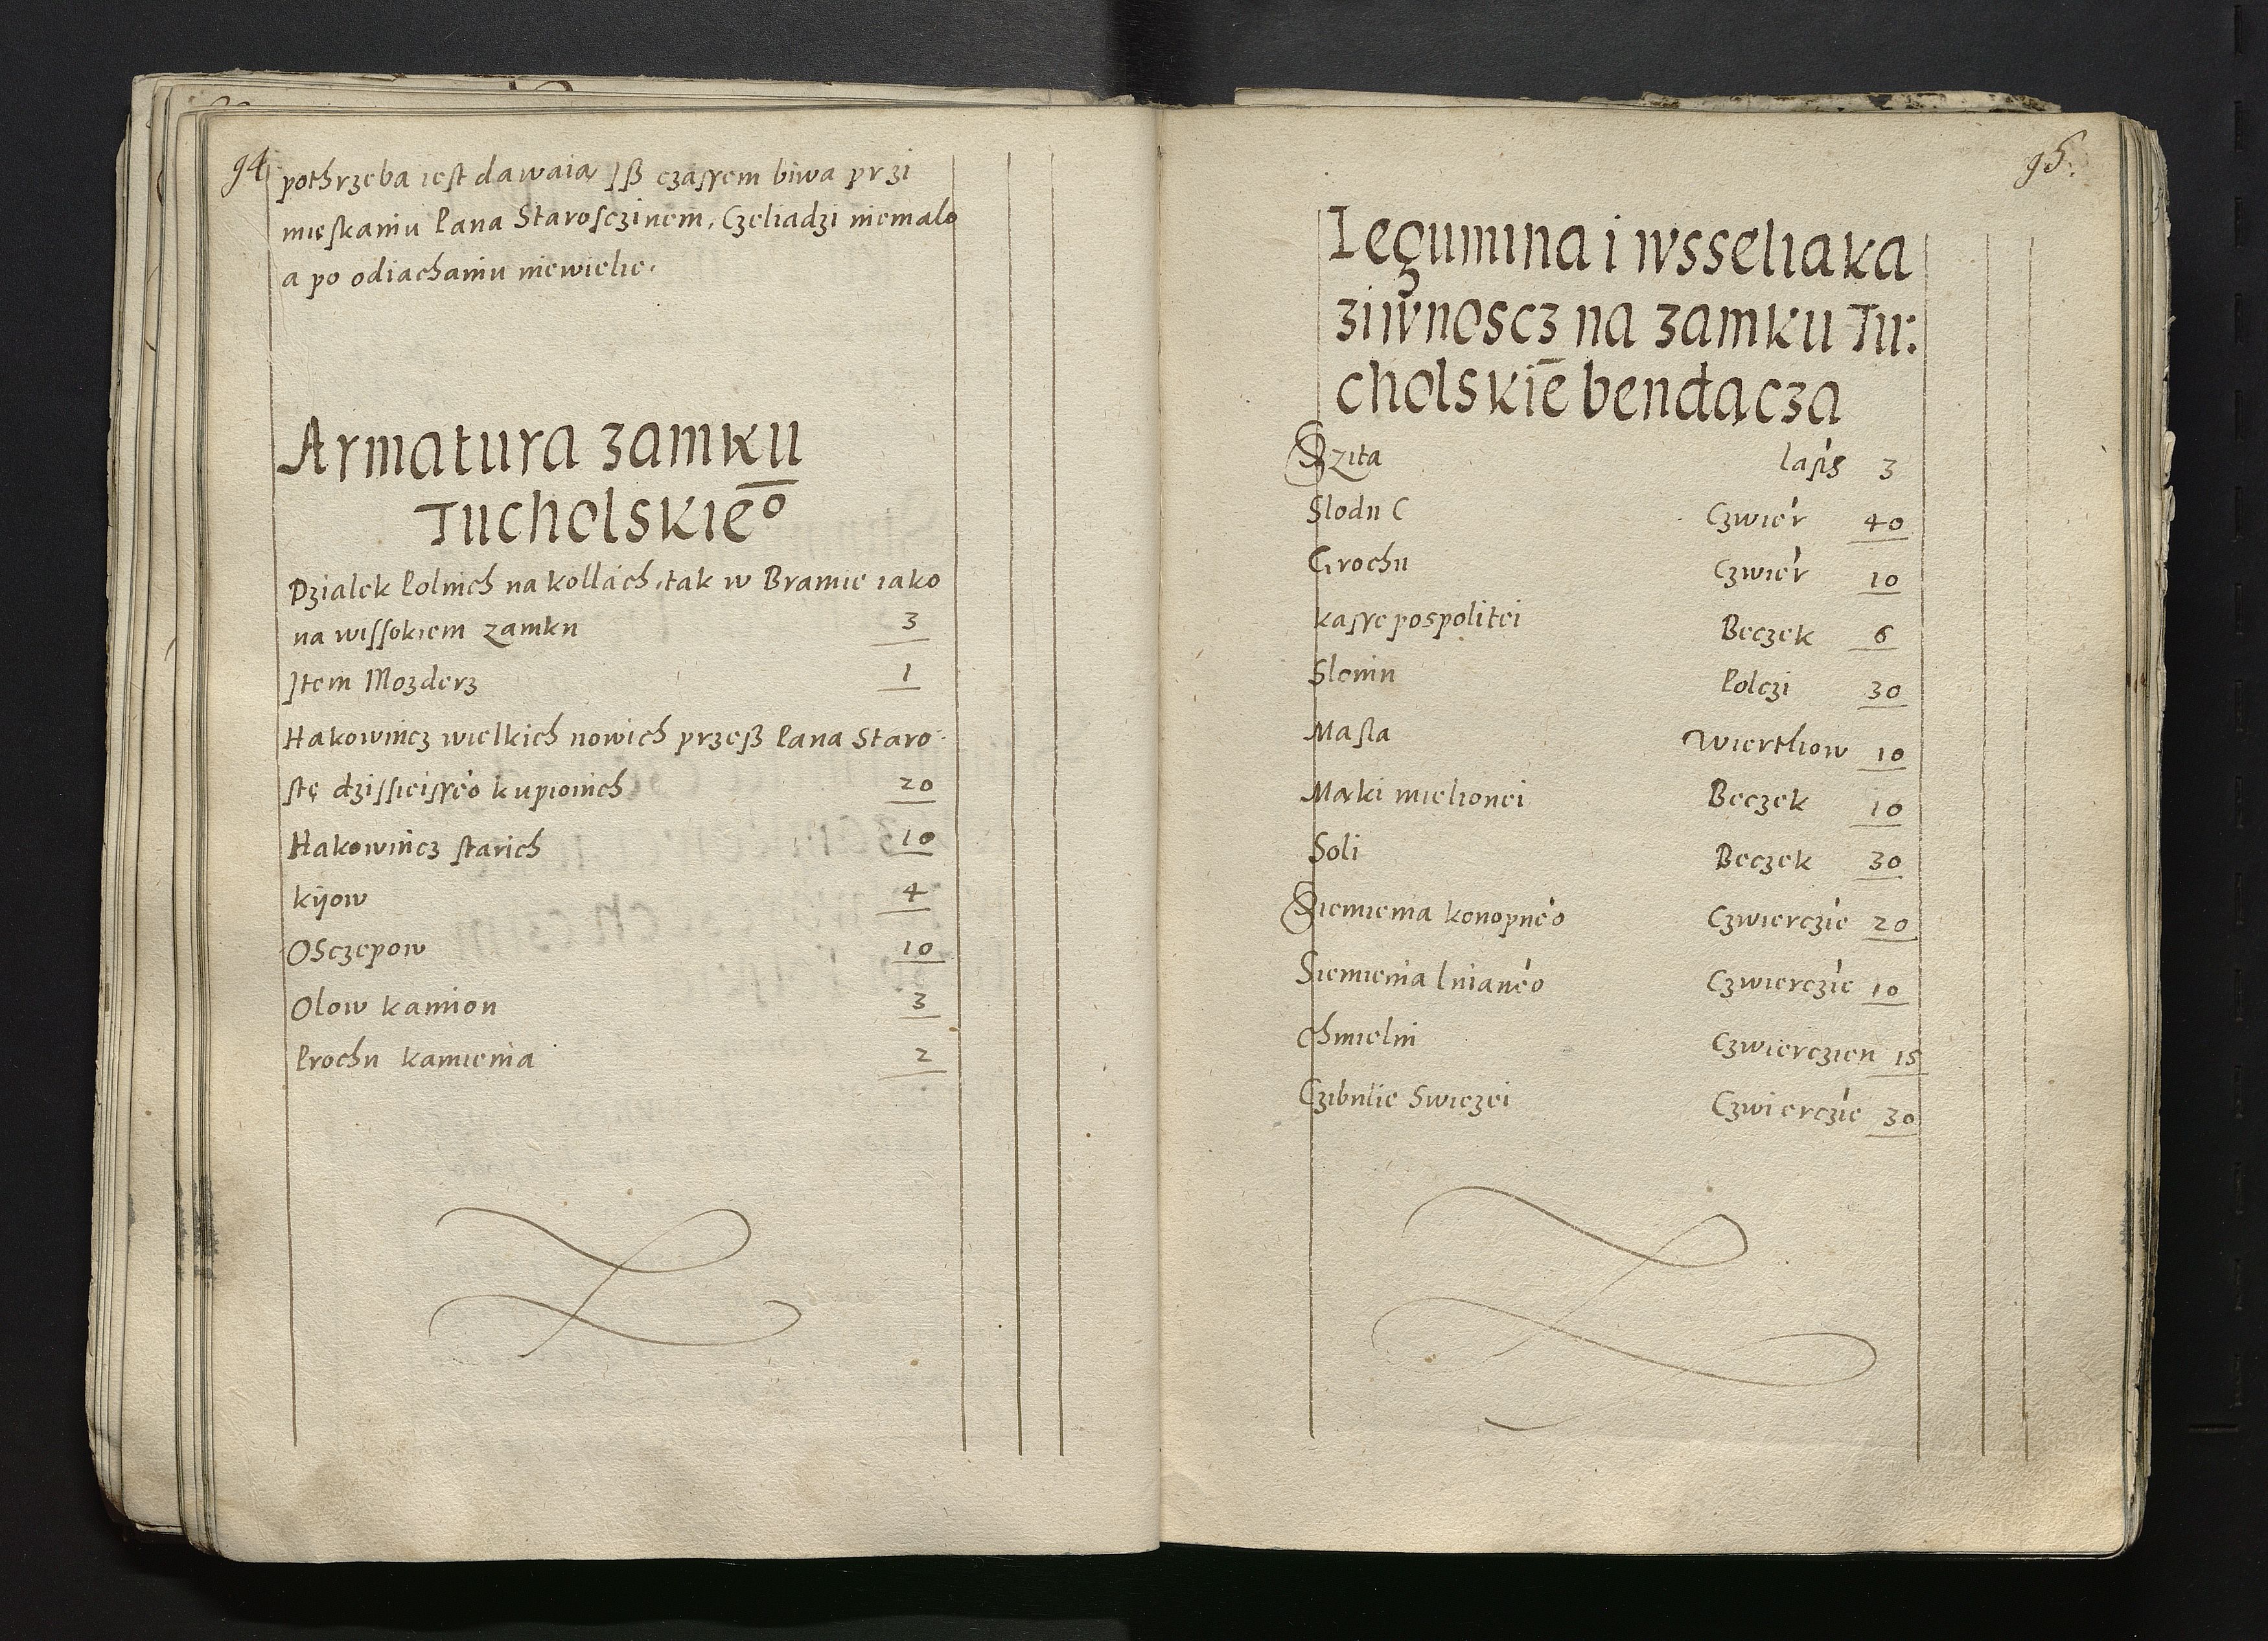 94
pothrzeba iest dawaią Jß czassem biwa przi
mieskaniu Pana Starosczinem, Czeliadzi niemalo
a po odiachaniu niewielie.
Armatura zamku
Tucholskie̅o
Dzialek Polnich na kollach, tak w Bramie iako
na wissokiem zamku 3
Jtem Mozderz 1
Hakowincz wielkich nowich przeß Pana Staro
stę dzissieisse̍o kupionich 20
Hakowincz starich 10
kijow 4
Osczepow 10
Olow kamion 3
Prochu kamienia 2
95.
Legumina i wsseliaka
ziwnoscz na zamku Tu:
cholskie̅ bendącza
Rzita lasis 3
Slodu C Czwier 40
Grochu Czwier 10
kasse pospolitei Beczek 6
Slonin Polczi 30
Masla Wierthow 10
Mąki mielionei Beczek 10
Soli Beczek 30
Siemienia konopne̍o Czwierczie 20
Siemienia lniane̍o Czwierczie 10
Chmielni Czwierczien 15
Czibulie Swiezei Czwierczie 30